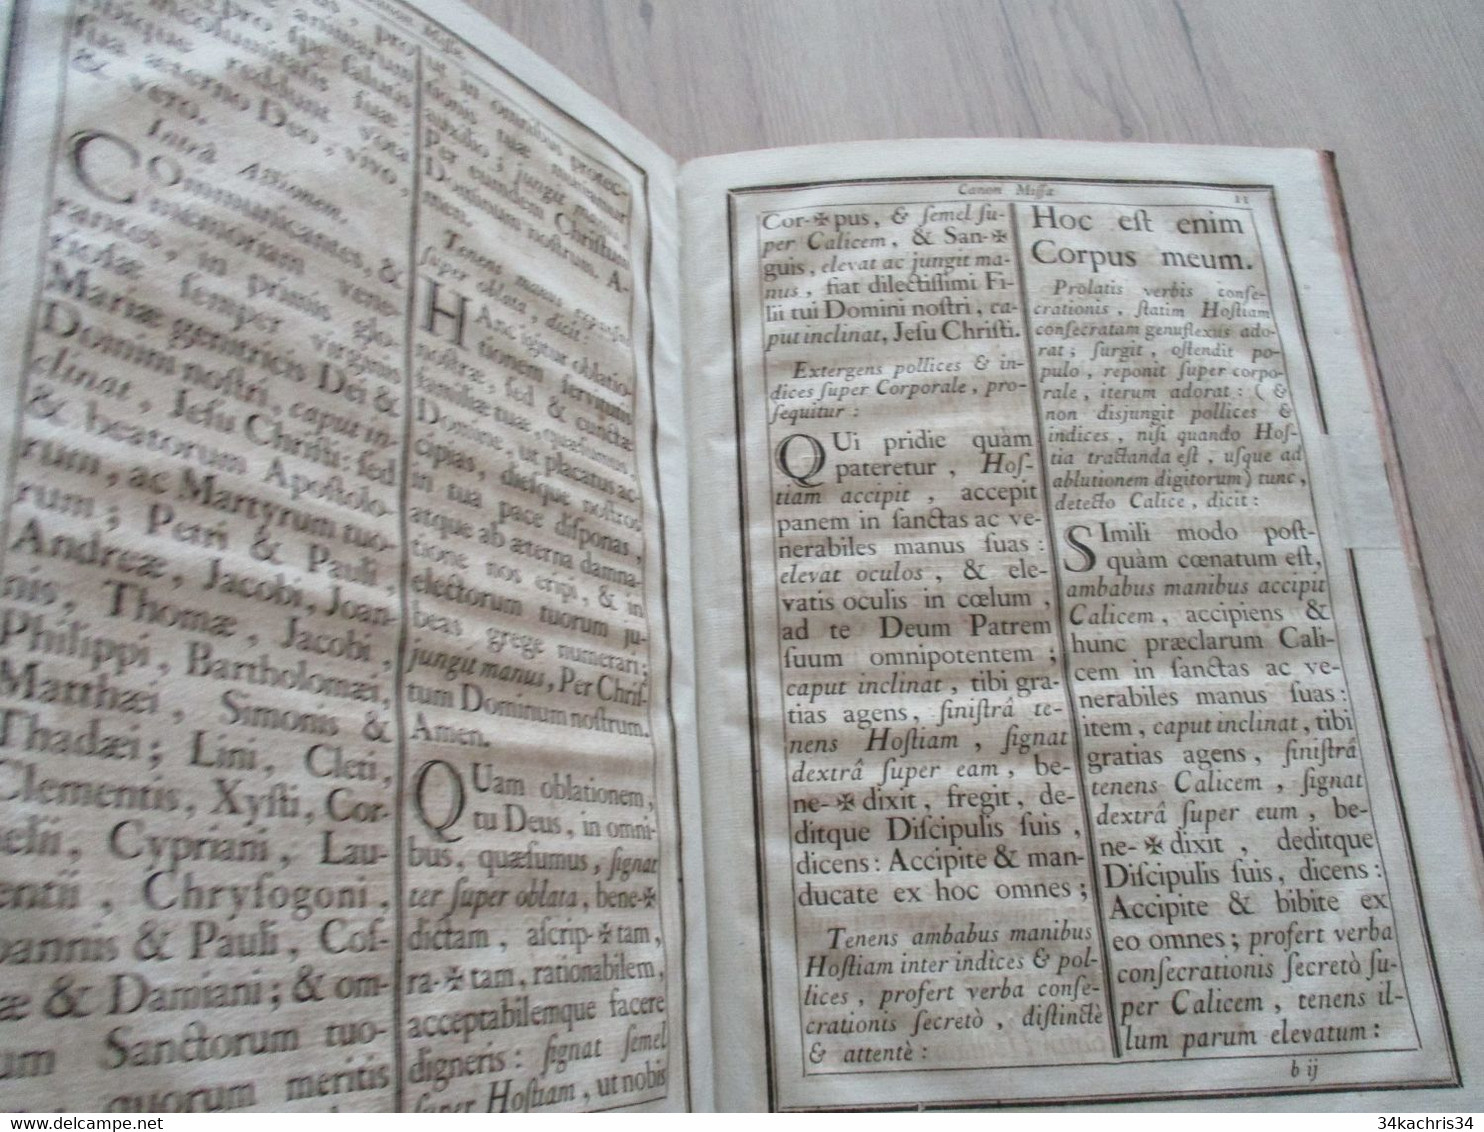 Canon Missæ
ut in omnibus protec-
tionis tuæ muniamur
auxilio; jungit manus,
Per eundem Christum
Dominum nostrum. A-
men.
Intrà Actionem.
COmmunicantes, &
memoriam vene-
rantes, in primis glo-
riosæ semper virginis
Mariæ genitricis Dei &
Domini nostri, caput in-
clinat, Jesu Christi: sed
& beatorum Apostolo-
rum, ac Martyrum tuo-
rum; Petri & Pauli,
Andreæ, Jacobi, Joan-
nis, Thomæ, Jacobi,
Philippi, Bartholomæi,
Matthæi, Simonis &
Thadæi; Lini, Cleti,
Clementis, Xysti, Cor-
nelii, Cypriani, Lau-
rentii, Chrysogoni,
Joannis & Pauli, Cos-
mæ & Damiani; & om-
nium Sanctorum tuo-
rum quorum meritis
Tenens manus expansas
super oblata, dicit:
HAnc igitur oblatio-
nem servitutis
nostræ, sed & cunctæ
familiæ tuæ, quæsumus,
Domine, ut placatus ac-
cipias, diesque nostros
in tua pace disponas,
atque ab æterna damna-
tione nos eripi, & in
electorum tuorum ju-
beas grege numerari;
jungit manus, Per Chris-
tum Dominum nostrum.
Amen.
QUam oblationem,
tu Deus, in omni-
bus, quæsumus, signat
ter super oblata, bene-✠
dictam, ascrip-✠tam,
ra-✠tam, rationabilem,
acceptabilemque facere
digneris: signat semel
super Hostiam, ut nobis
Canon Missæ 11
Cor-✠pus, & semel su-
per Calicem, & San-✠
guis, elevat ac jungit ma-
nus, fiat dilectissimi Fi-
lii tui Domini nostri, ca-
put inclinat, Jesu Christi.
Extergens pollices & in-
dices super Corporale, pro-
sequitur:
QUi pridie quàm
pateretur, Hos-
tiam accipit, accepit
panem in sanctas ac ve-
nerabiles manus suas:
elevat oculos, & ele-
vatis oculis in cœlum,
ad te Deum Patrem
suum omnipotentem;
caput inclinat, tibi gra-
tias agens, sinistrâ te-
nens Hostiam, signat
dextrâ super eam, be-
ne-✠dixit, fregit, de-
ditque Discipulis suis,
dicens: Accipite & man-
ducate ex hoc omnes;
Tenens ambabus manibus
Hostiam inter indices & pol-
lices, profert verba conse-
crationis secretò, distinctè
& attentè:
Hoc est enim
Corpus meum.
Prolatis verbis conse-
crationis, statim Hostiam
consecratam genuflexus ado-
rat; surgit, ostendit po-
pulo, reponit super corpo-
rale, iterum adorat: (&
non disjungit pollices &
indices, nisi quando Hos-
tia tractanda est, usque ad
ablutionem digitorum) tunc,
detecto Calice, dicit:
SImili modo post-
quàm cœnatum est,
ambabus manibus accipit
Calicem, accipiens &
hunc præclarum Cali-
cem in sanctas ac ve-
nerabiles manus suas:
item, caput inclinat, tibi
gratias agens, sinistrâ
tenens Calicem, signat
dextrâ super eum, be-
ne-✠dixit, deditque
Discipulis suis, dicens:
Accipite & bibite ex
eo omnes; profert verba
consecrationis secretò su-
per Calicem, tenens il-
lum parum elevatum:
b ij
34kachris34